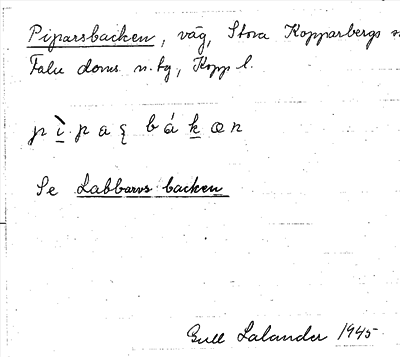 Piparsbacken, väg, Stora Kopparbergs
Falu doms n. tg, Kopp l.
pìpaꞩ bákæn
Se Labbarvs backen
Gull Lalander 1945